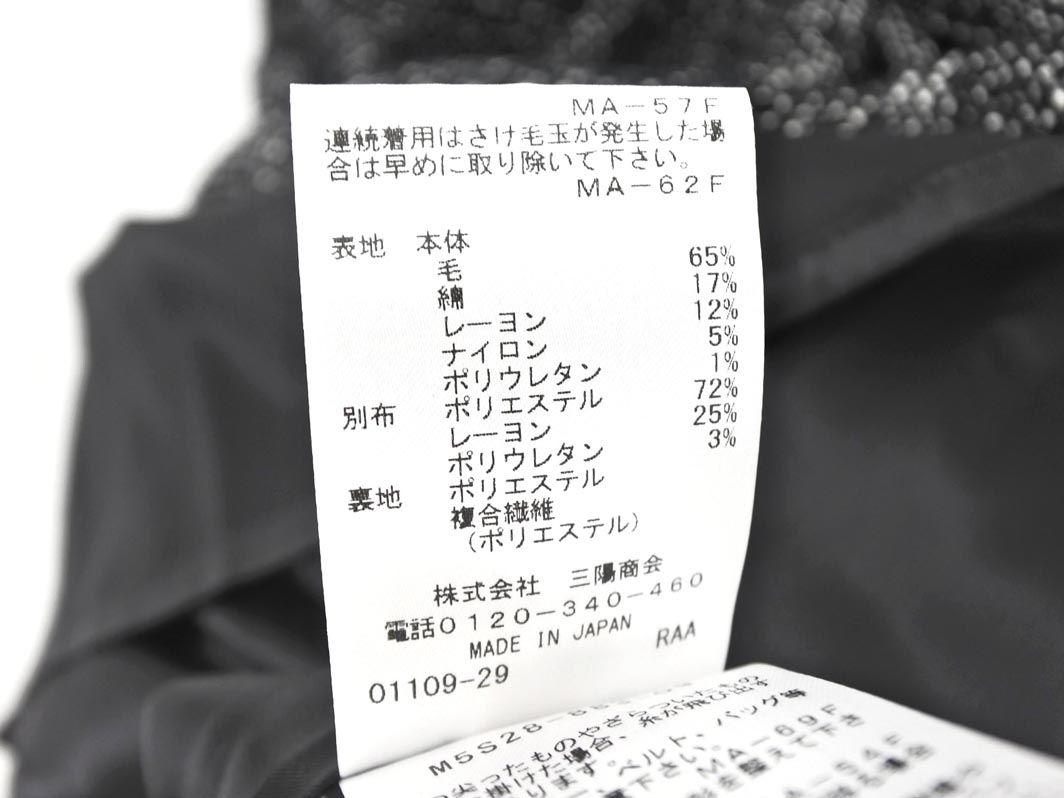 MA-57F
連続着用はさけ毛玉が発生した場
合は早めに取り除いて下さい。
MA-62F
表地 本体
毛 65%
綿 17%
レーヨン 12%
ナイロン 5%
ポリウレタン 1%
別布 ポリエステル 72%
レーヨン 25%
ポリウレタン 3%
裏地 ポリエステル
複合繊維
(ポリエステル)
株式会社 三陽商会
電話0120-340-460
MADE IN JAPAN
RAA
01109-29
M5S28-
尖ったものやざらついたもの
掛けた場合、糸が飛び出す
ります。ベルト、バッグ等
下さい。
MA-69F
整えて下さ